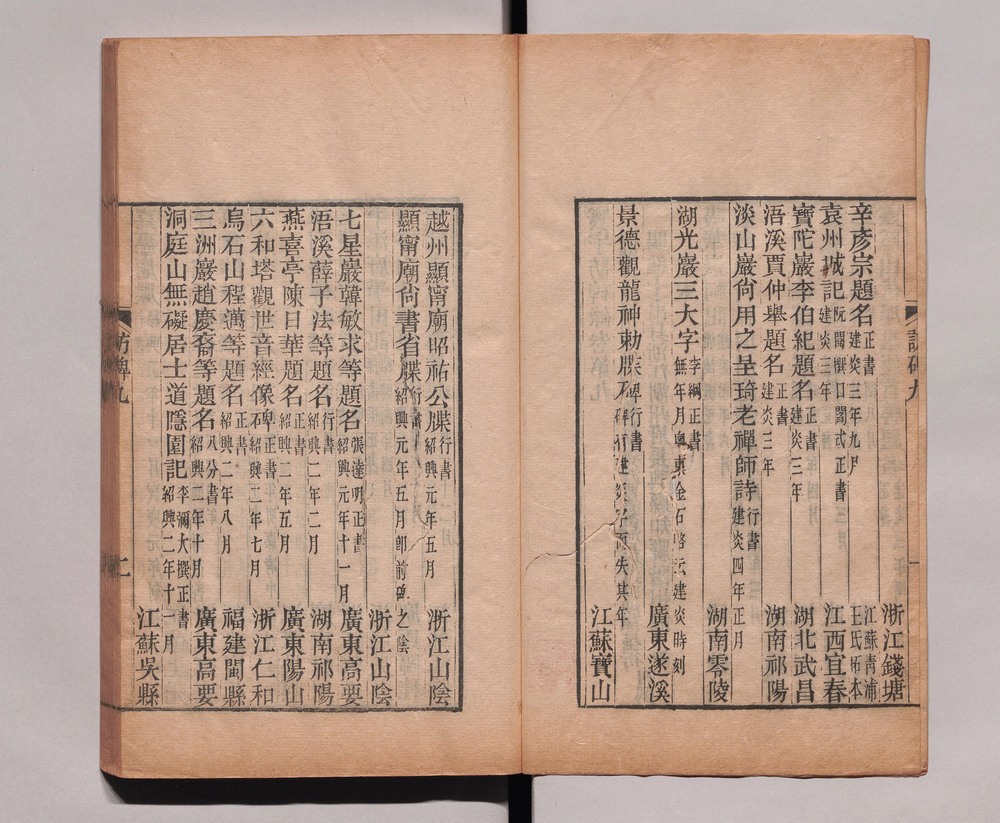 辛彥宗題名 正書 建炎三年九月 浙江錢塘
袁州城記 阮閱撰 閭武正書 建炎三年 江蘇青浦王氏拓本 江西宜春
寶陀巖李伯紀題名 正書 建炎三年 湖北武昌
浯溪賈仲舉題名 正書 建炎三年 湖南祁陽
淡山巖尙用之呈琦老禪師詩 行書 建炎四年正月
湖南零陵
湖光巖三大字 李綱正書 無年月粵東金石略云建炎時刻
廣東遂溪
景德觀龍神勅牒 行書 碑有建炎字而失其年
江蘇寶山
訪碑九 一
越州顯甯廟昭祐公牒 行書 紹興元年五月 浙江山陰
顯甯廟尙書省牒 行書 紹興元年五月卽前碑之陰
浙江山陰
七星巖韓敏求等題名 張達明正書 紹興元年十一月 廣東高要
浯溪薛子法等題名 行書 紹興二年二月 湖南祁陽
燕喜亭陳日華題名 正書 紹興二年五月 廣東陽山
六和塔觀世音經像碑 正書 石紹興二年七月 浙江仁和
烏石山程邁等題名 正書 紹興二年八月 福建閩縣
三洲巖趙慶裔等題名 八分書 紹興二年十月 廣東高要
洞庭山無礙居士道隱園記 李彌大撰正書 紹興二年十一月 江蘇吳縣
訪碑九 二